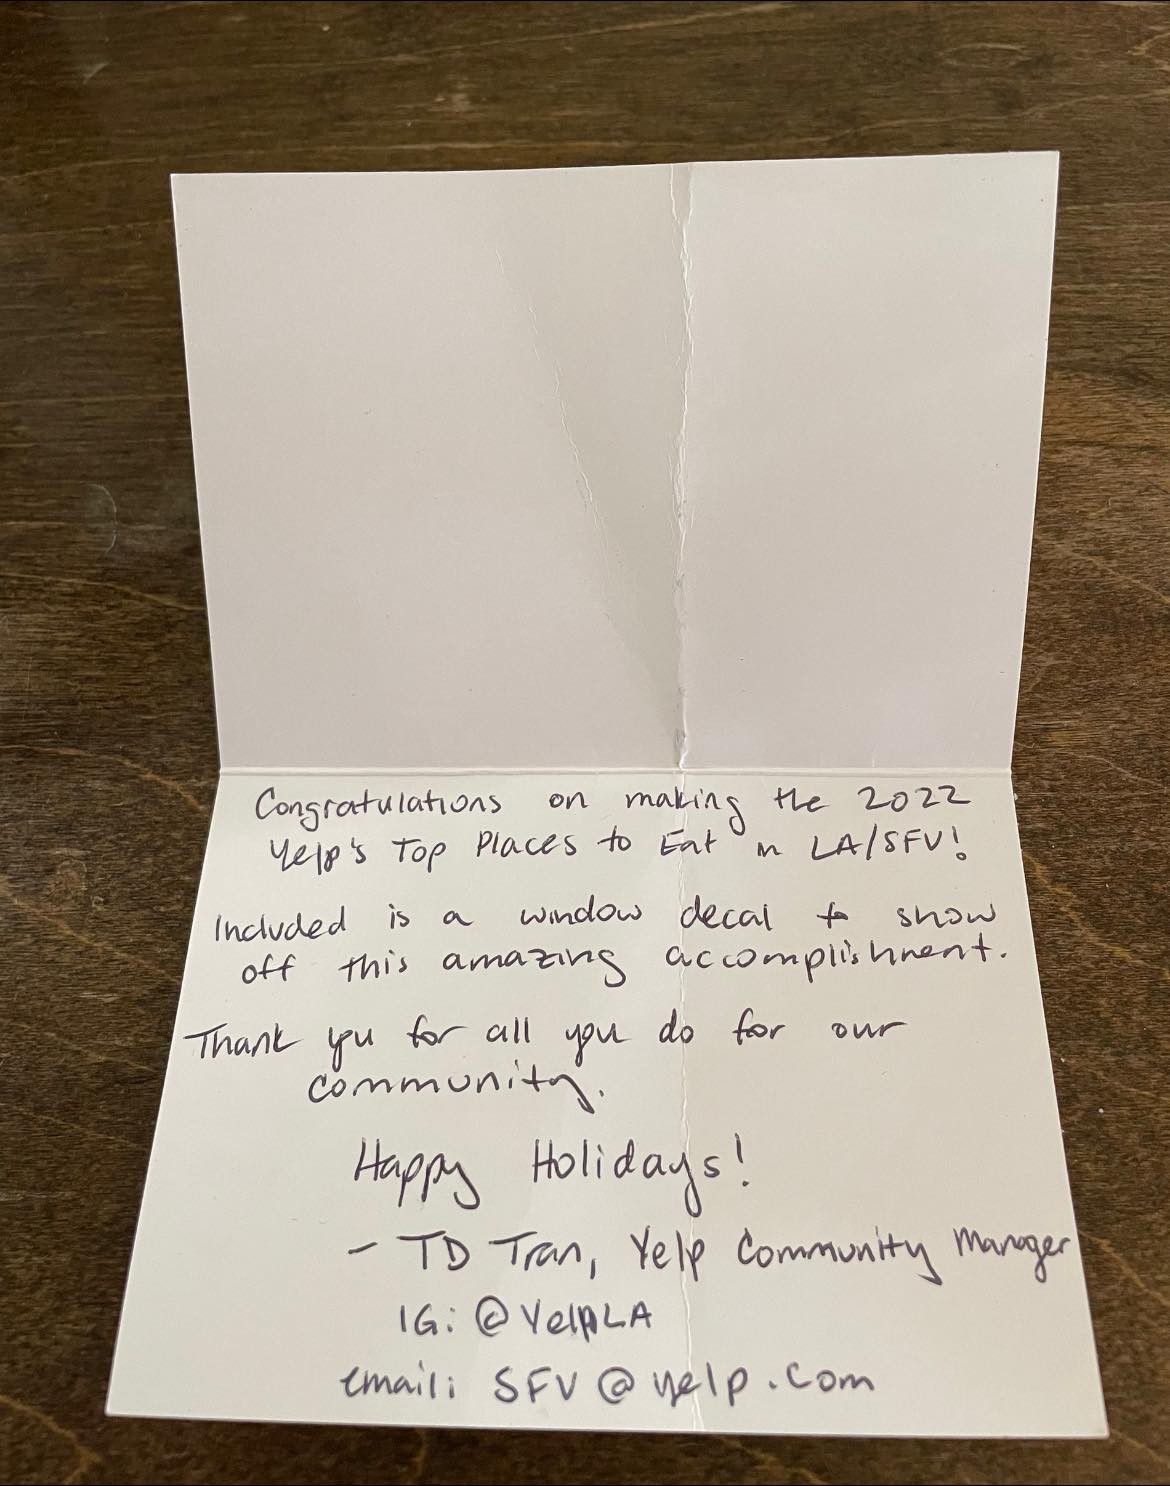 Congratulations on making the 2022
Yelp's Top Places to Eat in LA/SFV!
Included is a window decal to show
off this amazing accomplishment.
Thank you for all you do for our
community.
Happy Holidays!
- TD Tran, Yelp Community Manager
IG: @YelpLA
email: SFV@yelp.com